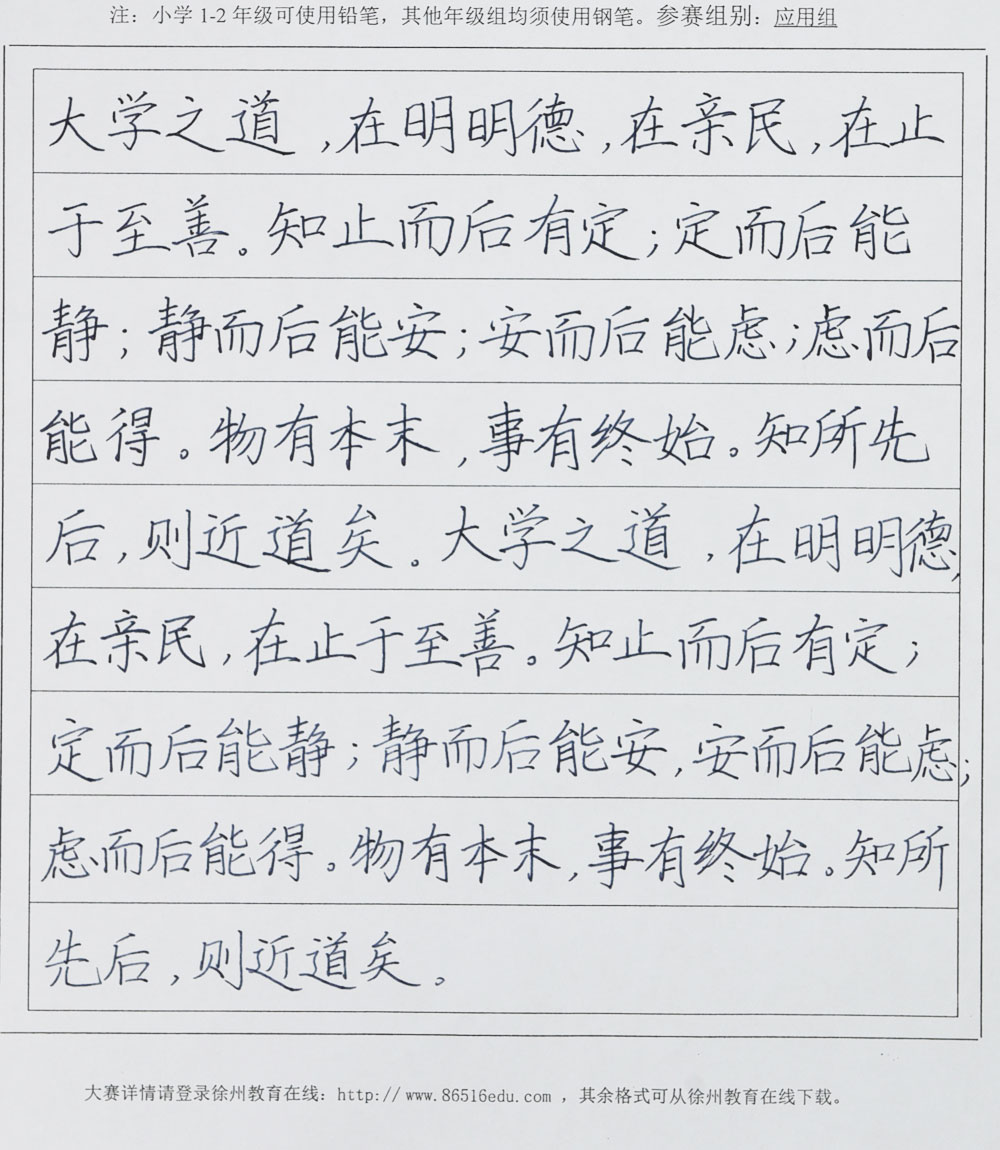 注：小学1-2年级可使用铅笔，其他年级组均须使用钢笔。参赛组别：应用组
大学之道，在明明德，在亲民，在止
于至善。知止而后有定；定而后能
静；静而后能安；安而后能虑；虑而后
能得。物有本末，事有终始。知所先
后，则近道矣。大学之道，在明明德，
在亲民，在止于至善。知止而后有定；
定而后能静；静而后能安，安而后能虑；
虑而后能得。物有本末，事有终始。知所
先后，则近道矣。
大赛详情请登录徐州教育在线：http://www.86516edu.com ，其余格式可从徐州教育在线下载。